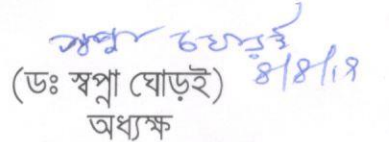 স্বপ্না ঘোড়ই
(ডঃ স্বপ্না ঘোড়ই)
অধ্যক্ষ